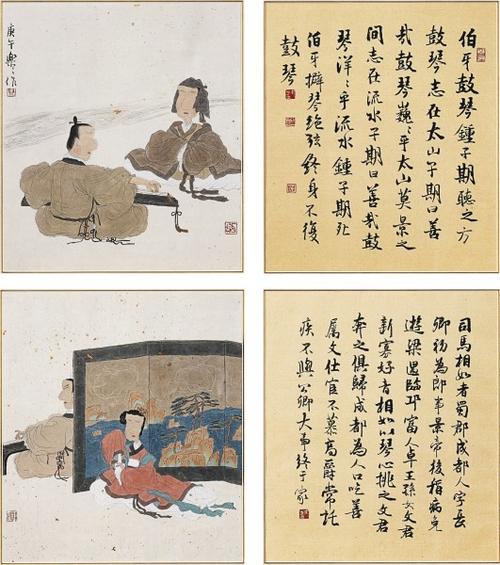 庚午樂〻作
伯牙鼓琴鍾子期聽之方
鼓琴志在太山子期曰善
哉鼓琴巍〻乎太山莫景之
間志在流水子期曰善哉鼓
琴洋〻乎流水鍾子期死
伯牙擗琴絕弦終身不復
鼓琴
司馬相如者蜀郡成都人字長
卿初為郎事景帝後稱病免
遊梁還臨邛富人卓王孫女文君
新寡好音相如以琴心挑之文君
奔之俱歸成都為人口吃善
屬文仕宦不慕高爵常託
疾不與公卿大事終于家